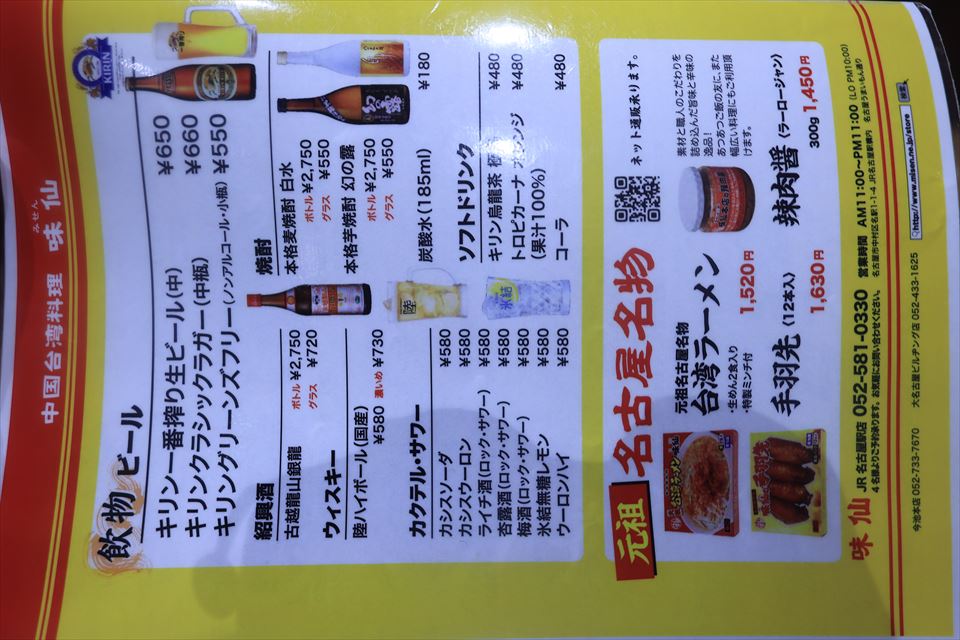 中国台湾料理 味仙
みせん
飲物 ビール
キリン一番搾り生ビール(中) ¥650
キリンクラシックラガー(中瓶) ¥660
キリングリーンズフリー(ノンアルコール・小瓶) ¥550
KIRIN
一番搾り
紹興酒
古越龍山銀龍
ボトル ¥2,750
グラス ¥720
ウィスキー
陸ハイボール(国産)
¥580 濃いめ ¥730
カクテル・サワー
カシスソーダ ¥580
カシスウーロン ¥580
ライチ酒(ロック・サワー) ¥580
杏露酒(ロック・サワー) ¥580
梅酒(ロック・サワー) ¥580
氷結無糖レモン ¥580
ウーロンハイ ¥580
陸
氷結
焼酎
本格麦焼酎 白水
ボトル ¥2,750
グラス ¥550
本格芋焼酎 幻の露
ボトル ¥2,750
グラス ¥550
炭酸水(185ml) ¥180
ソフトドリンク
キリン烏龍茶 ¥480
トロピカーナ オレンジ ¥480
(果汁100%)
コーラ ¥480
元祖 名古屋名物
ネット通販承ります。
元祖名古屋名物
台湾ラーメン
・生めん2食入り
・特製ミンチ付
1,520円
手羽先(12本入)
1,630円
素材と職人のこだわりを
詰め込んだ旨味と辛味の
逸品!
あつあつご飯の友に、また
幅広い料理にもご利用頂
けます。
辣肉醤(ラーロージャン)
300g 1,450円
味仙 JR名古屋駅店 052-581-0330 営業時間 AM11:00〜PM11:00 (LO PM10:00)
4名様よりご予約承ります。お気軽にお問い合わせください。 名古屋市中村区名駅1-1-4 JR名古屋駅構内 名古屋うまいもん通り
今池本店 052-733-7670 大名古屋ビルヂング店 052-433-1625 http://www.misen.ne.jp/store 検索